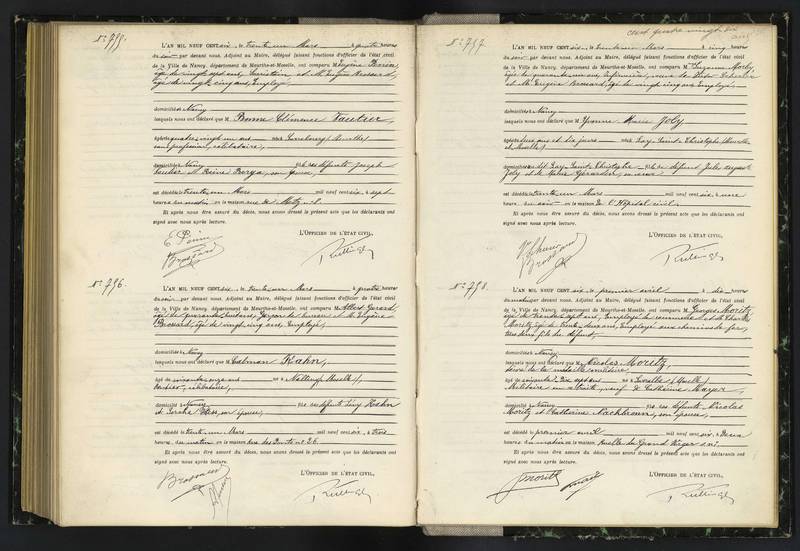 N° 795.
L'AN MIL NEUF CENT six, le trente un Mars à quatre heures
du soir par devant nous, Adjoint au Maire, délégué faisant fonctions d'officier de l'état civil
de la Ville de Nancy, département de Meurthe-et-Moselle, ont comparu M. Eugène
âgé de vingt sept ans, et M. Eugène Brossard,
âgé de vingt cinq ans, Employé,
domiciliés à Nancy
lesquels nous ont déclaré que M. Clémence Vautier,
âgée quatre vingt un ans née à Lunebourg (Meurthe)
sans profession, célibataire,
domiciliée à Nancy fille des défunts Joseph
Vautier et Reine son épouse,
est décédée trente un Mars mil neuf cent six, à sept
heures du matin en la maison rue de Metz
Et après nous être assuré du décès, nous avons dressé le présent acte que les déclarants ont
signé avec nous après lecture.
L'OFFICIER DE L'ÉTAT CIVIL,
Brossard
N° 796.
L'AN MIL NEUF CENT six, le trente un Mars à quatre heures
du soir par devant nous, Adjoint au Maire, délégué faisant fonctions d'officier de l'état civil
de la Ville de Nancy, département de Meurthe-et-Moselle, ont comparu M. Albert
âgé de quarante ans, Garçon de bureau et M. Eugène
Brossard, âgé de vingt cinq ans, Employé,
domiciliés à Nancy
lesquels nous ont déclaré que M. Calman Kahn,
âgé de soixante onze ans né à (Moselle),
célibataire,
domicilié à Nancy fils des défunts Lévy Kahn
et son épouse,
est décédé trente un Mars mil neuf cent six, à trois
heures du matin en la maison rue des Ponts n° 26
Et après nous être assuré du décès, nous avons dressé le présent acte que les déclarants ont
signé avec nous après lecture.
L'OFFICIER DE L'ÉTAT CIVIL,
Brossard
cent quatre vingt dix
N° 797.
L'AN MIL NEUF CENT six, le trente un Mars à cinq heures
du soir par devant nous, Adjoint au Maire, délégué faisant fonctions d'officier de l'état civil
de la Ville de Nancy, département de Meurthe-et-Moselle, ont comparu Mme Suzanne
âgée de quarante ans, infirmière, veuve de
et M. Eugène Brossard, âgé de vingt cinq ans Employé
domiciliés à Nancy
lesquels nous ont déclaré que M. Yvonne Marie Joly
âgée deux ans et dix jours née à Lay Saint Christophe (Meurthe
et Moselle)
domiciliée au dit Lay Saint Christophe fille de défunt Jules
Joly et de
est décédée trente un Mars mil neuf cent six, à une
heure du soir en la maison de l'Hôpital civil
Et après nous être assuré du décès, nous avons dressé le présent acte que les déclarants ont
signé avec nous après lecture.
L'OFFICIER DE L'ÉTAT CIVIL,
Brossard
N° 798.
L'AN MIL NEUF CENT six, le premier avril à dix heures
du matin par devant nous, Adjoint au Maire, délégué faisant fonctions d'officier de l'état civil
de la Ville de Nancy, département de Meurthe-et-Moselle, ont comparu M. Georges Moritz,
âgé de trente sept ans, Employé de commerce et M. Charles
Moritz, âgé de trente deux ans, Employé aux chemins de fer,
tous deux fils du défunt,
domiciliés à Nancy,
lesquels nous ont déclaré que M. Nicolas Moritz,
décoré de la médaille militaire,
âgé de soixante dix sept ans né à (Moselle)
Militaire en retraite, veuf de Catherine Mayer,
domicilié à Nancy fils des défunts Nicolas
Moritz et Catherine son épouse,
est décédé premier avril mil neuf cent six, à deux
heures du matin en la maison Ruelle du Grand Verger n°
Et après nous être assuré du décès, nous avons dressé le présent acte que les déclarants ont
signé avec nous après lecture.
L'OFFICIER DE L'ÉTAT CIVIL,
Moritz